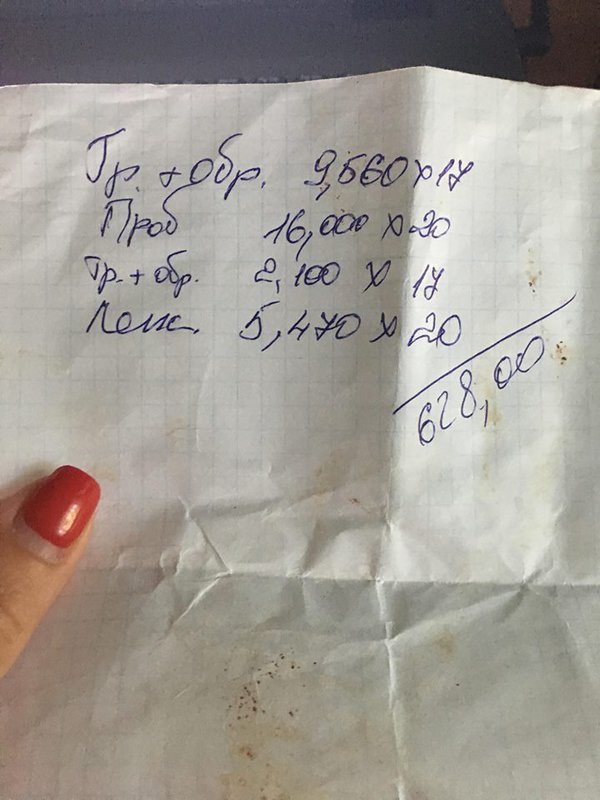 Гр. + обр. 9,560 х 17
Проб 16,000 х 20
Гр. + обр. 2,100 х 17
5,470 х 20
628,00